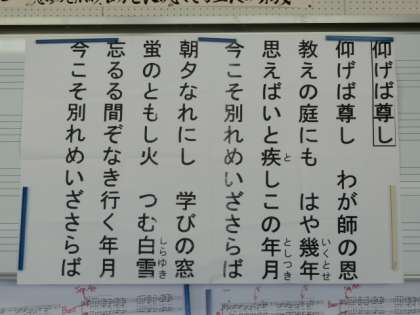 仰げば尊し
仰げば尊し　わが師の恩
教えの庭にも　はや幾年
いくとせ
思えばいと疾しこの年月
と
としつき
今こそ別れめいざさらば
朝夕なれにし　学びの窓
蛍のともし火　つむ白雪
しらゆき
忘るる間ぞなき行く年月
今こそ別れめいざさらば